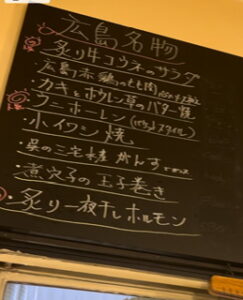 広島名物
炙り牛コウネのサラダ
・広島赤鶏のもも肉
・カキとホウレン草のバター焼
・ウニホーレン(バゲットスタイル)
小イワシ焼
・呉の三宅本産 がんす
・煮穴子の玉子巻き
・炙り一夜干しホルモン